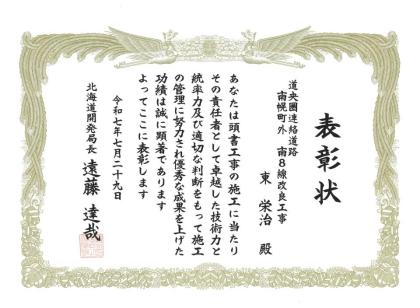 表彰状
道央圏連絡道路
南幌町外 南8線改良工事
東 栄治 殿
あなたは頭書工事の施工に当たり
その責任者として卓越した技術力と
統率力及び適切な判断をもって施工
の管理に努力され優秀な成果を上げた
功績は誠に顕著であります
よってここに表彰します
令和七年七月二十九日
北海道開発局長 遠藤 達哉